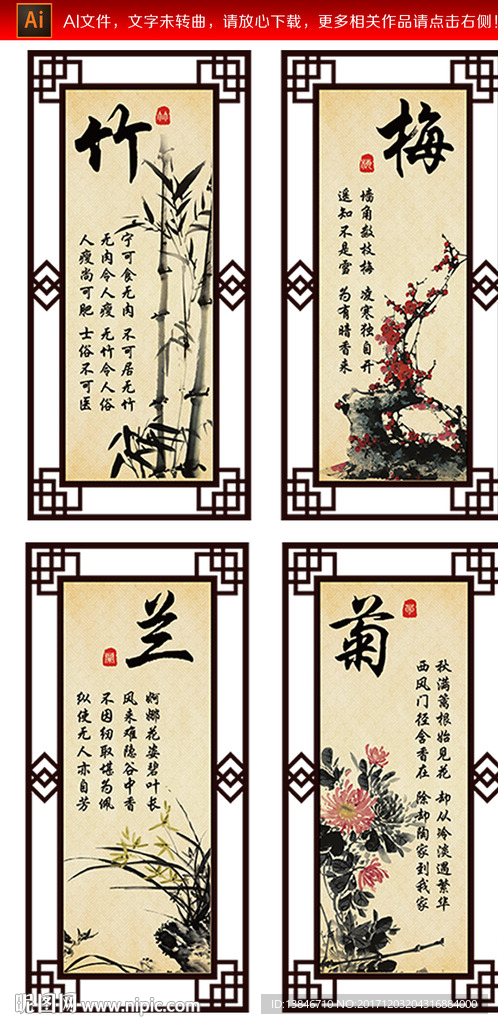 Ai
AI文件，文字未转曲，请放心下载，更多相关作品请点击右侧!
竹
宁可食无肉 不可居无竹
无肉令人瘦 无竹令人俗
人瘦尚可肥 士俗不可医
梅
墙角数枝梅 凌寒独自开
遥知不是雪 为有暗香来
兰
婀娜花姿碧叶长
风来难隐谷中香
不因纫取堪为佩
纵使无人亦自芳
菊
秋满篱根始见花 却从冷淡遇繁华
西风门径含香在 除却陶家到我家
昵图网 www.nipic.com
ID:13846710 NO:20171203204316884000